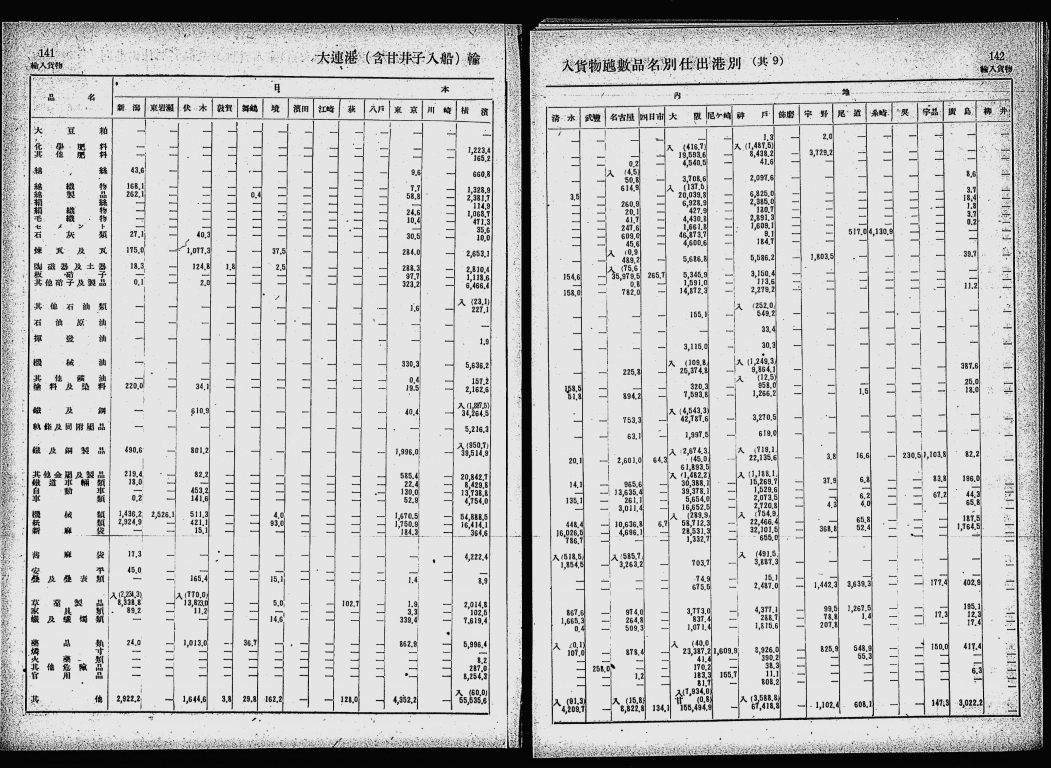 141
輸入貨物
大連港(含甘井子入船)輸
品名 日 本
新潟 東岩瀬 伏木 敦賀 舞鶴 境 濱田 江崎 萩 八戶 東京 川崎 橫濱
大豆粕 — — — — — — — — — — — — —
化學肥料 — — — — — — — — — — — — 1,223,4
其他肥料 — — — — — — — — — — — — 165,2
43,6 — — — — — — — — — 9,6 — 660,8
綿織物 168,1 — — — — — — — — — 7,7 — 1,328,9
綿製品 262,1 — — — 0,4 — — — — — 58,8 — 2,381,7
絹絲 — — — — — — — — — — — — 114,9
絹織物 — — — — — — — — — — 24,6 — 1,068,7
毛織物 — — — — — — — — — — 10,4 — 471,3
セメント — — — — — — — — — — — — 35,6
石灰類 27,1 — 40,3 — — — — — — — 30,5 — 10,0
煉瓦及瓦 175,0 — 1,077,3 — — 37,5 — — — — 284,0 — 2,653,1
陶磁器及土器 18,3 — 124,8 1,8 — 2,5 — — — — 288,3 — 2,810,4
板硝子 — — — — — — — — — — 97,7 — 1,118,6
其他硝子及製品 0,1 — 2,0 — — — — — — — 323,2 — 6,466,4
入(23,1)
其他石油類 — — — — — — — — — — 1,6 — 227,1
石油原油 — — — — — — — — — — — — —
揮發油 — — — — — — — — — — — — 1,9
機械油 — — — — — — — — — — 330,3 — 5,636,2
其他礦油 — — — — — — — — — — 0,4 — 157,2
塗料及染料 220,0 — 34,1 — — — — — — — 19,5 — 2,162,6
鐵及鋼 — — 610,9 — — — — — — — 40,4 — 34,264,5
軌條及同附屬品 — — — — — — — — — — — — 5,216,3
入(950,7)
鐵及鋼製品 490,6 — 801,2 — — — — — — — 1,996,0 — 39,514,9
其他金屬及製品 219,4 — 82,2 — — — — — — — 585,4 — 20,842,7
鐵道車輛類 18,0 — — — — — — — — — 22,4 — 8,429,8
自動車 — — 453,2 — — — — — — — 130,0 — 13,738,8
車類 0,2 — 141,6 — — — — — — — 52,9 — 4,754,0
機械類 1,436,2 2,526,1 511,3 — — 4,0 — — — — 1,670,5 — 54,888,5
紙類 2,924,9 — 421,1 — — 93,0 — — — — 1,750,9 — 16,414,1
新麻袋 — — 15,1 — — — — — — — 184,3 — 364,6
舊麻袋 17,3 — — — — — — — — — — — 4,222,4
安平 45,0 — — — — — — — — — — — —
疊及疊表類 — — 165,4 — — 15,1 — — — — 1,4 — 8,9
入(2,224,3) 入(770,0)
草蓆製品 8,338,8 — 13,823,0 — — 5,0 — — 102,7 — 1,9 — 2,014,8
家具類 89,2 — 11,2 — — — — — — — 3,3 — 102,5
蠟及蠟燭類 — — — — — 14,6 — — — — 339,4 — 7,619,4
藥品類 24,0 — 1,013,0 — 36,7 — — — — — 862,9 — 5,996,4
燐寸 — — — — — — — — — — — — —
火藥類 — — — — — — — — — — — — 8,2
其他危險品 — — — — — — — — — — — — 287,0
官用品 — — — — — — — — — — — — 8,254,3
入(60,0)
其他 2,922,2 — 1,644,6 3,8 29,8 162,2 — — 128,0 — 4,352,2 — 55,535,6
142
輸入貨物
入貨物噸數品名別仕出港別(共9)
內 地
淸水 武豐 名古屋 四日市 大阪 尼ケ崎 神戶 飾磨 宇野 尾道 糸崎 吳 宇品 廣島 柳井
1,3 2,0
入(416,7) 入(1,487,5)
19,593,6 8,438,2 3,729,2
0,2 4,540,5 41,6
入(4,5)
50,8 3,708,6 2,097,6 8,6
614,9 入(137,5) 3,7
3,5 20,039,8 6,825,0 18,4
260,9 6,928,9 2,385,0 1,8
20,1 427,9 130,7 3,7
41,7 4,430,8 2,891,3 0,2
247,6 1,661,8 1,609,1
609,0 46,873,7 9,1 517,0 4,130,9
45,6 4,600,6 184,7
入(0,9)
489,2 5,686,8 5,586,2 1,803,5 39,7
入(75,6)
154,6 35,979,5 265,7 5,345,9 3,150,4
0,8 1,591,0 113,6 11,2
158,0 782,0 14,872,3 2,279,2
入(252,0)
155,1 549,2
33,4
3,115,0 30,3
入(109,8) 入(1,249,3)
225,8 25,374,8 9,864,1 387,6
入(12,5)
158,5 320,3 958,0 25,0
51,8 894,2 7,593,8 1,266,2 1,5 18,0
入(4,543,3)
753,3 42,787,6 3,270,5
63,1 1,997,5 619,0
入(2,674,3) 入(719,1)
20,1 2,601,0 64,3 (45,0) 22,135,6 3,8 16,6 230,5 1,103,8 82,2
61,893,5
入(1,482,2) 入(1,188,1)
14,1 965,6 30,388,1 15,269,7 37,9 6,8 83,8 196,0
13,635,4 39,378,1 1,529,6
135,1 261,1 5,654,0 2,073,5 6,2 67,2 44,3
3,011,4 16,652,5 2,720,8 4,3 4,0 65,8
入(289,9) 入(754,9)
448,4 10,636,8 6,7 58,712,3 22,466,4 65,8 187,5
16,026,5 4,696,1 28,531,3 32,101,5 368,8 52,4 1,764,5
786,7 1,332,7 655,0
入(518,5) 入(585,7) 入(491,5)
1,854,5 3,263,2 703,7 3,887,3
74,9 15,1
675,5 2,487,0 1,442,3 3,639,3 177,4 402,9
867,6 974,0 3,773,0 4,377,1 99,5 1,267,5 195,1
1,665,3 264,8 837,4 288,7 78,8 1,4 17,3 12,3
0,4 509,3 1,071,4 1,815,6 207,8 17,4
入(0,1) 入(40,0)
107,0 878,4 23,387,2 1,609,9 3,926,0 825,9 548,9 150,0 417,4
41,4 390,2 55,3
258,0 170,2 38,3
1,2 183,3 155,7 11,1 6,3
81,7 808,2
入(7,934,0)
入(91,3) 入(15,8) 甘(0,8) 入(3,588,8)
4,209,7 8,822,8 134,1 155,494,9 67,418,8 1,102,4 608,1 147,3 3,022,2